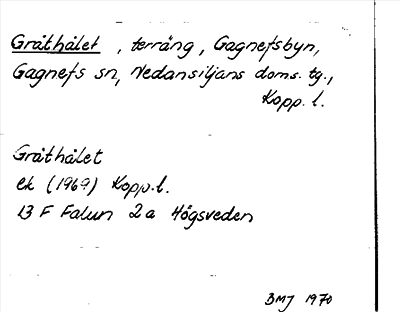 Gråthålet, terräng, Gagnefsbyn,
Gagnefs sn, Nedansiljans doms. tg.,
Kopp. l.
Gråthålet
ek (1969) Kopp. l.
13 F Falun 2a Högsveden
BMJ 1970